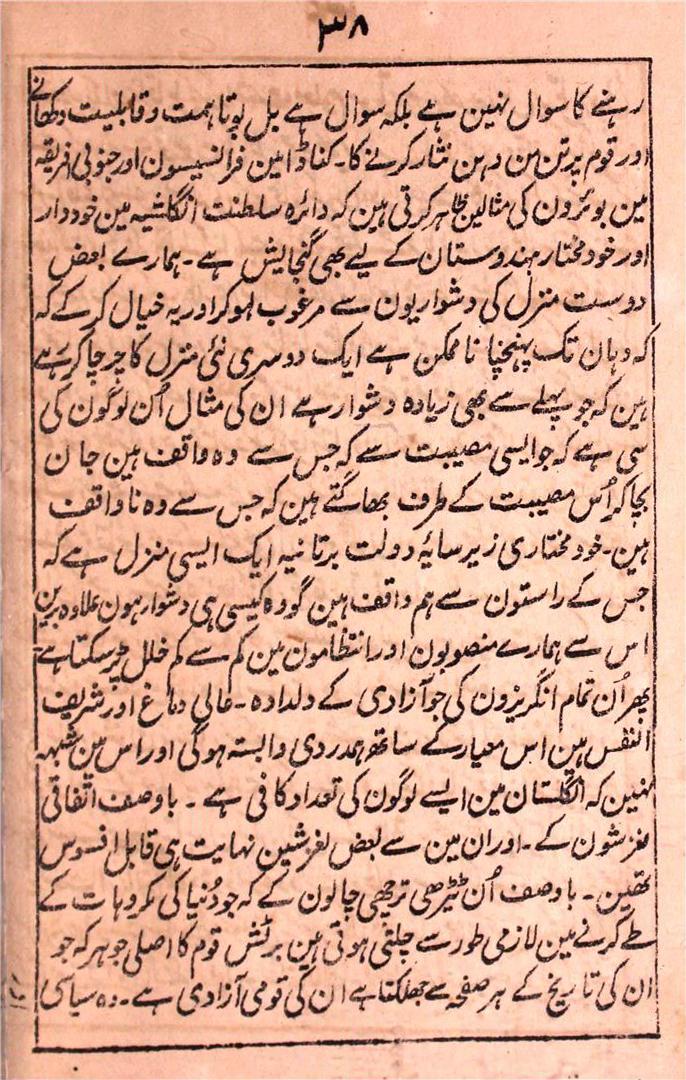 ۳۸
رہنے کا سوال نہین ہے بلکہ سوال ہے بل بوتا ہمت و قابلیت دکھانے
اور قوم پر تن من دہن نثار کرنے کا۔ کناڈا مین فرانسیسون اور جنوبی افریقہ
مین بوئرون کی مثالین ظاہر کرتی ہین کہ دائرہ سلطنت انگلشیہ مین خوددار
اور خود مختار ہندوستان کے لیے بھی گنجایش ہے۔ ہمارے بعض
دوست منزل کی دشواریون سے مرغوب ہوکر اور یہ خیال کرکے کہ
کہ وہان تک پہنچنا ناممکن ہے ایک دوسری نئی منزل کا چرچا کر رہے
ہین کہ جو پہلے سے بھی زیادہ دشوار ہے ان کی مثال اُن لوگون کی
سی ہے کہ جو ایسی مصیبت سے کہ جس سے وہ واقف ہین جان
بچا کر اُس مصیبت کے طرف بھاگتے ہین کہ جس سے وہ ناواقف
ہین۔ خود مختاری زیر سایۂ دولت برتانیہ ایک ایسی منزل ہے کہ
جس کے راستون سے ہم واقف ہین گو وہ کیسی ہی دشوار ہون علاوہ برین
اس سے ہمارے منصوبون اور انتظامون مین کم سے کم خلل پڑ سکتا ہے۔
پھر اُن تمام انگریزون کی جو آزادی کے دلدادہ۔ عالی دماغ اور شریف
النفس ہین اس معیار کے ساتھ ہمدردی وابستہ ہوگی اور اس مین شبہہ
نہین کہ انگلستان مین ایسے لوگون کی تعداد کافی ہے۔ باوصف اتفاقی
لغزشون کے۔ اور ان مین سے بعض لغزشین نہایت ہی قابل افسوس
تھین۔ باوصف اُن ٹیڑھی ترچھی چالون کے کہ جو دُنیا کی مکروہات کے
طے کرنے مین لازمی طور سے چلنی ہوتی ہین برٹش قوم کا اصلی جوہر کہ جو
ان کی تاریخ کے ہر صفحہ سے جھلکتا ہے ان کی قومی آزادی ہے۔ وہ سیاسی